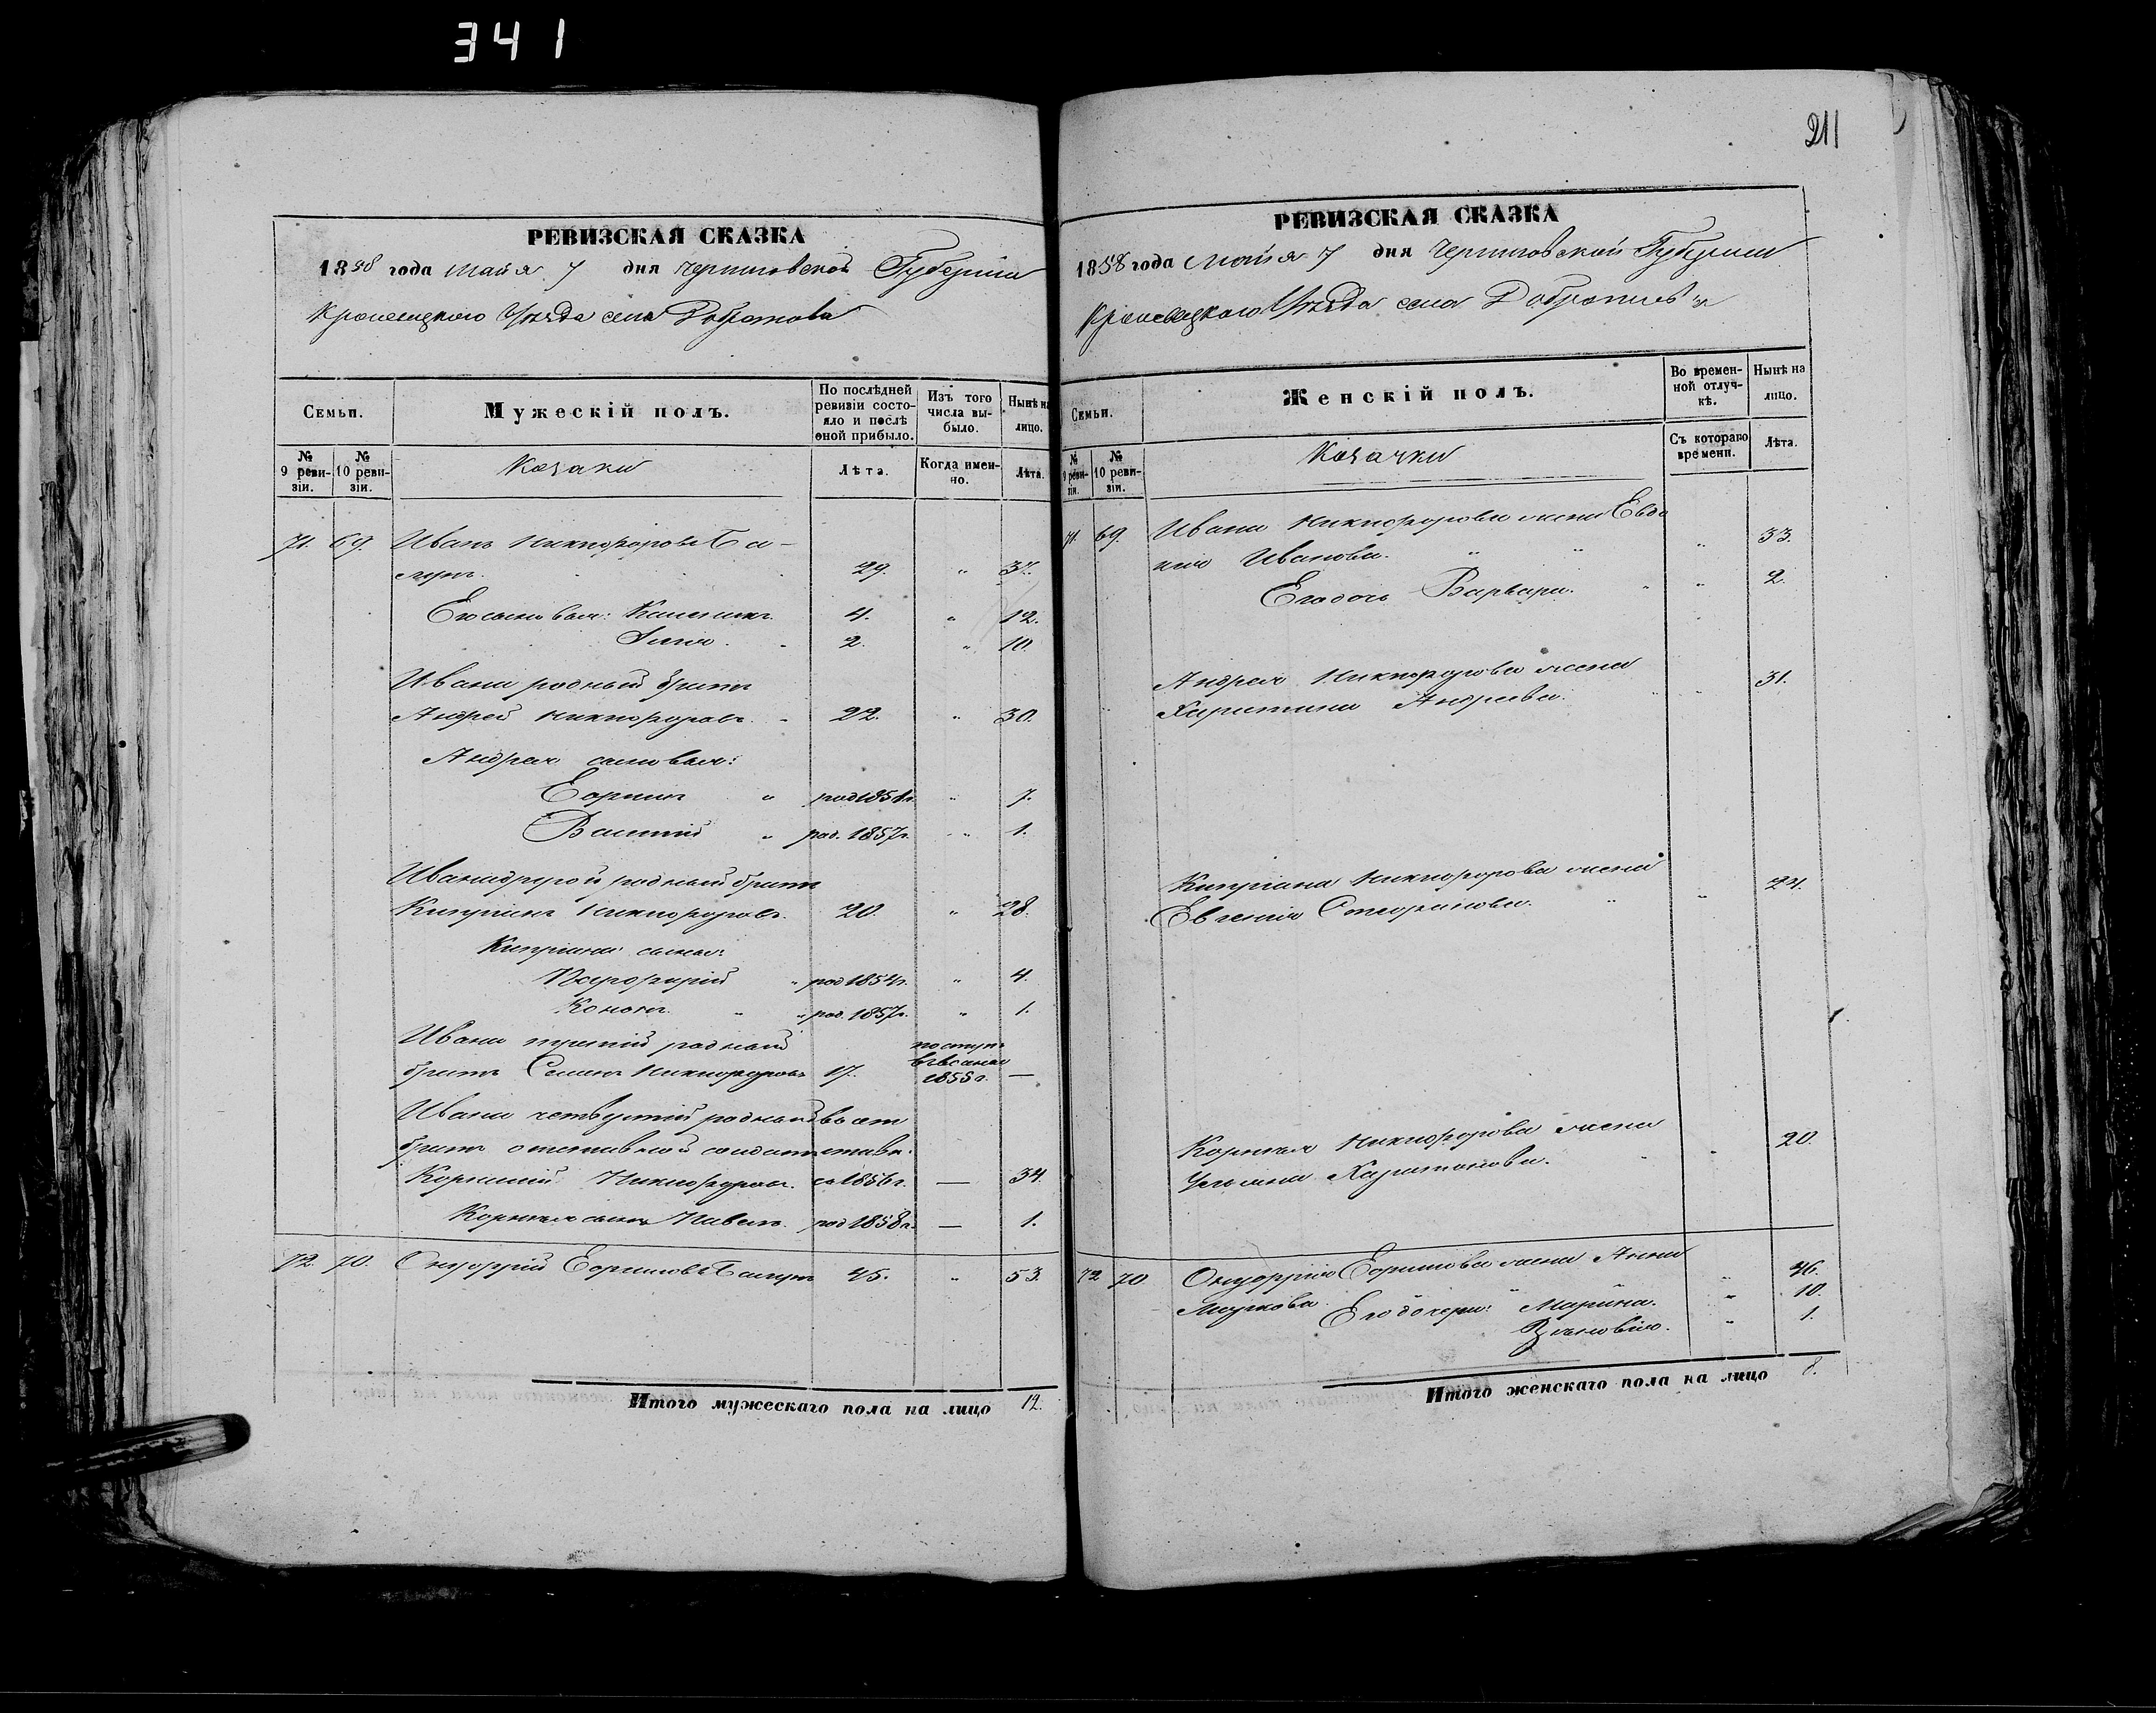 341
РЕВИЗСКАЯ СКАЗКА
1858 года Майя 7 дня Черниговской Губернии
Кролевецкого Уезда села Добротова
Семьи.
Мужескій полъ.
По послѣдней ревизіи состояло и послѣ оной прибыло.
Изъ того числа выбыло.
Нынѣ на лицо.
№ 9 ревизіи.
№ 10 ревизіи.
Козаки
Лѣта.
Когда именно.
Лѣта.
71. 69. Иванъ Никифоровъ Ба-
29. " 37.
Его сыновья: 4. " 12.
2. " 10.
Ивана родный братъ
Андрей Никифоровъ. 22. " 30.
Андрея сыновья:
Ефимъ " род 1851г. " 7.
Василій " род. 1857г. " 1.
Ивана другой родный братъ
Кипріянъ Никифоровъ. 20. " 28.
Кипріяна сыны:
Порфирій " род 1854г. " 4.
Кононъ. " род. 1857г. " 1.
Ивана третій родный
братъ Семенъ Никифоровъ 17. 1855г. —
Ивана четвертій родный въ от
братъ отставной солдатъ ставк.
Корнилій Никифоровъ. съ 1856г. — 34.
Корнилія сынъ Павелъ. род 1858г. — 1.
72. 70. Онуфрій Ефимовъ 45. " 53.
Итого мужескаго пола на лицо 12.
211
РЕВИЗСКАЯ СКАЗКА
1858 года Майя 7 дня Черниговской Губернии
Кролевецкого Уезда села Добротова
Семьи.
Женскій полъ.
Во временной отлучкѣ.
Нынѣ на лицо.
№ 9 ревизіи.
№ 10 ревизіи.
Козачки
Съ котораго времени.
Лѣта.
71. 69. Ивана Никифорова жена Евдо
кія Иванова. " " " 33.
Его дочь Варвара. " " 2.
Андрея Никифорова жена
Харитина Андреева. " " 31.
Кипріяна Никифорова жена
Евгенія Стефанова. " " 24.
Корнилія Никифорова жена
Ульяна Харитонова. " " 20.
72 70 Онуфрія Ефимова жена Анна
" 46.
Его дочери: Марина. " 10.
Зѣновія. " 1.
Итого женскаго пола на лицо 8.